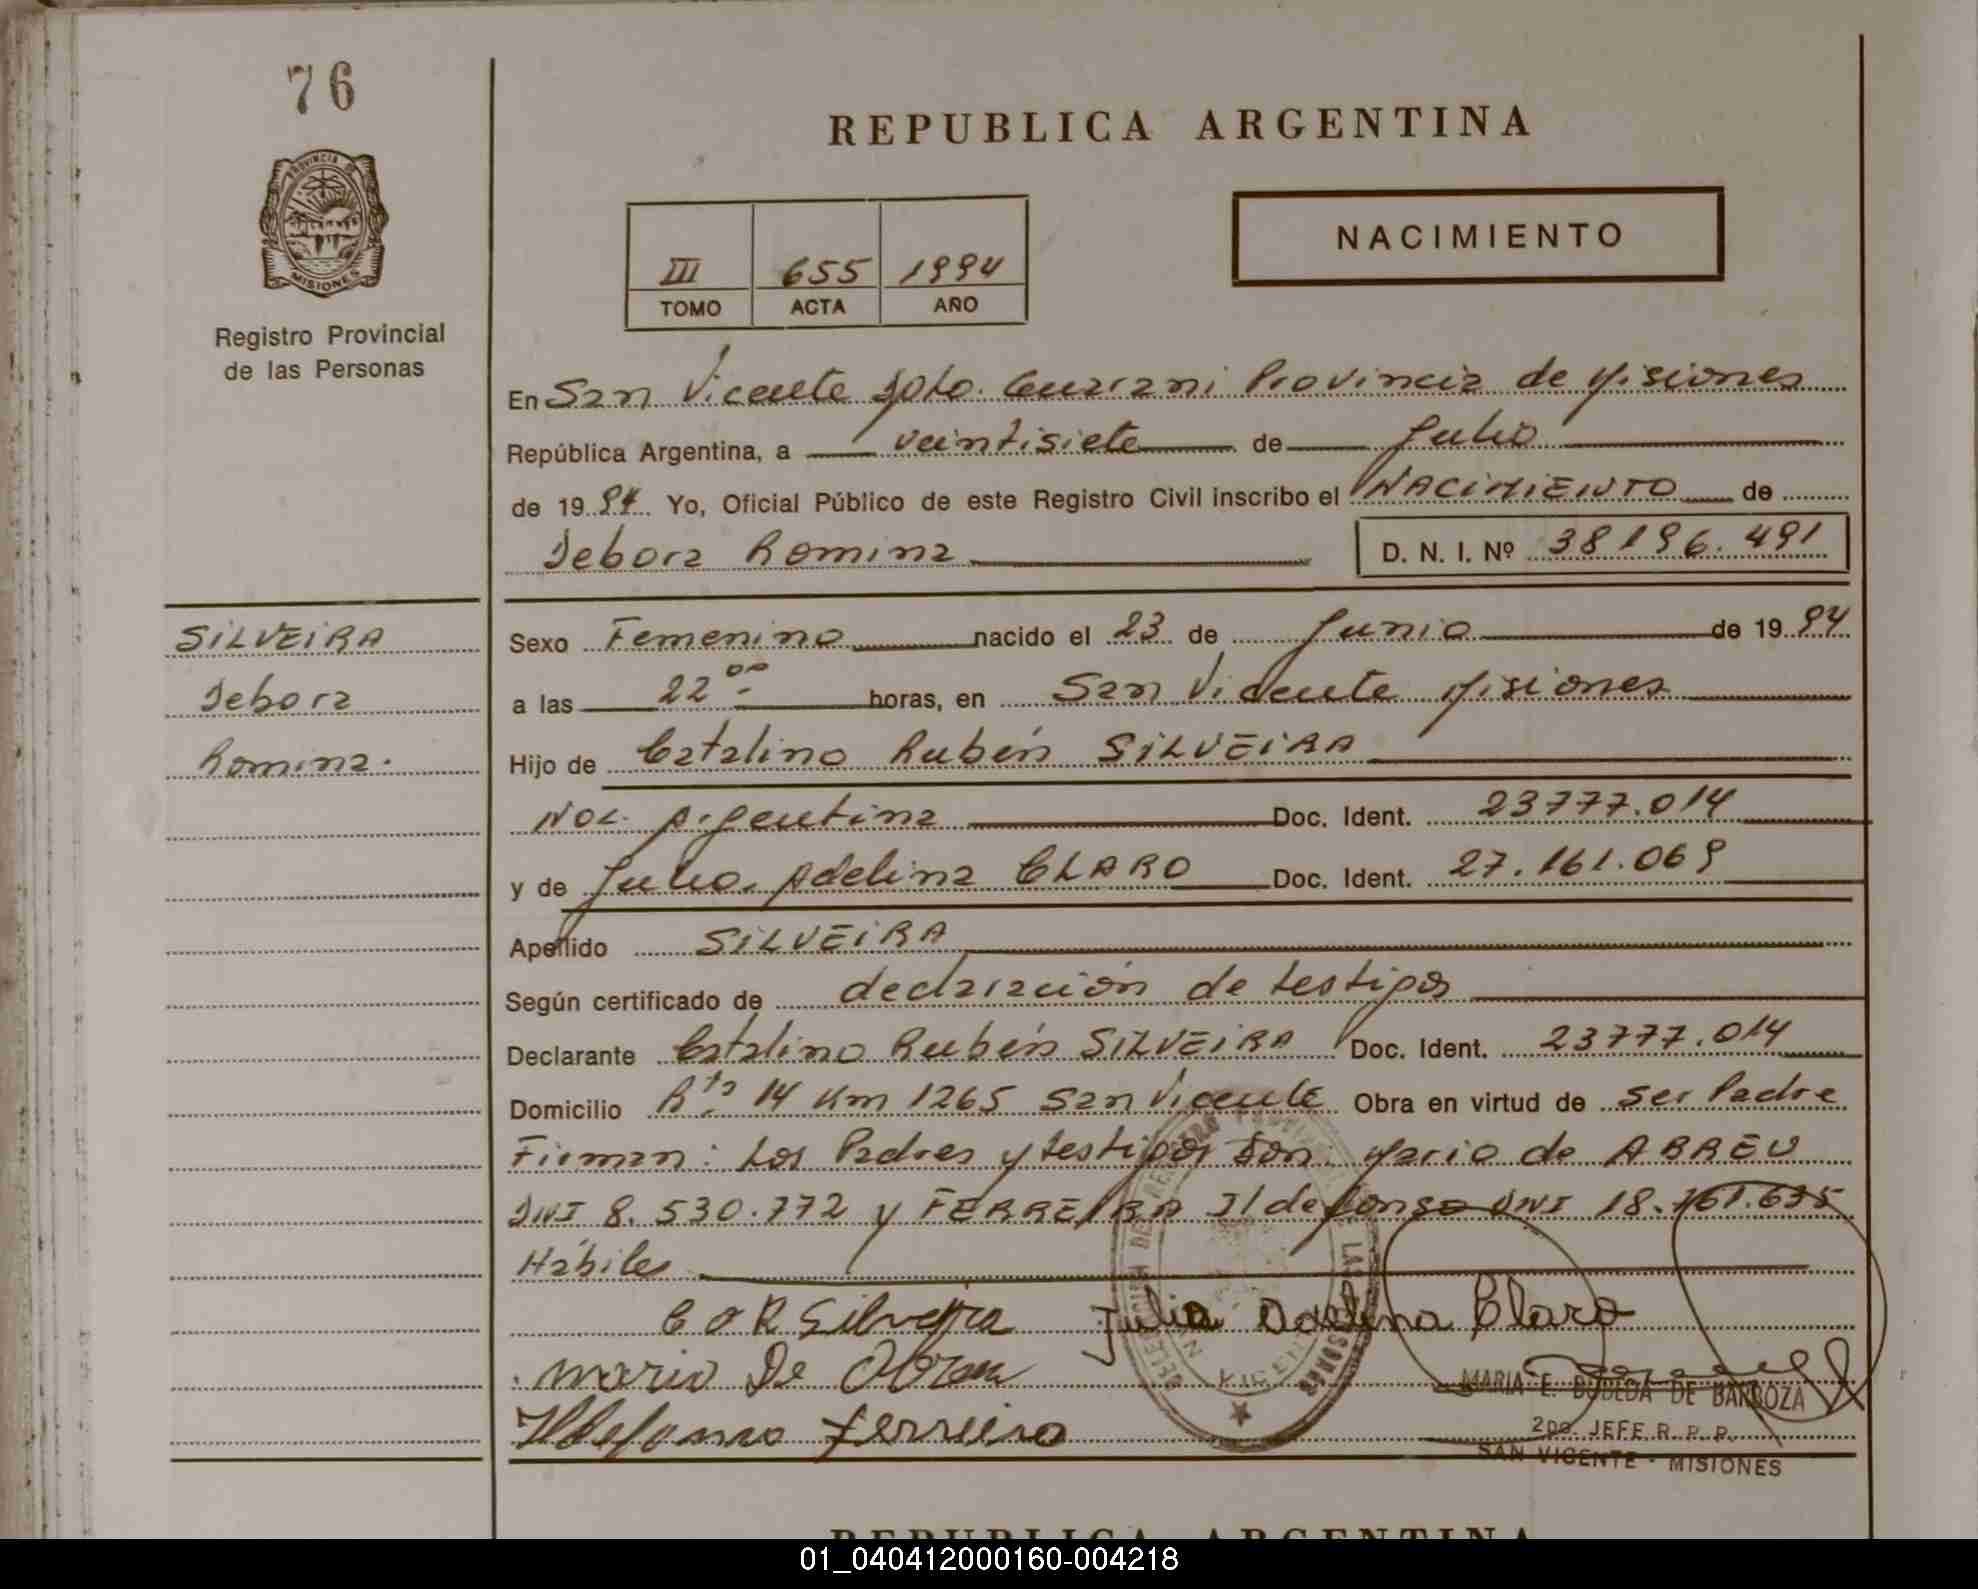 76
PROVINCIA DE
MISIONES
Registro Provincial
de las Personas
REPUBLICA ARGENTINA
NACIMIENTO
III 655 1994
TOMO ACTA AÑO
En San Vicente Dpto. Guarani Provincia de Misiones
República Argentina, a veintisiete de Julio
de 1994 Yo, Oficial Público de este Registro Civil inscribo el NACIMIENTO de
Debora Romina D. N. I. Nº 38196.491
SILVEIRA
Debora
Romina.
Sexo Femenino nacido el 23 de Junio de 1994
a las 22 00 horas, en San Vicente Misiones
Hijo de Catalino Rubén SILVEIRA
Nac. Argentina Doc. Ident. 23777.014
y de Julia Adelina CLARO Doc. Ident. 27.161.069
Apellido SILVEIRA
Según certificado de declaración de testigos
Declarante Catalino Rubén SILVEIRA Doc. Ident. 23777.014
Domicilio Rta 14 Km 1265 San Vicente Obra en virtud de ser Padre
Firman: Los Padres y testigos Don. Mario de ABREU
DNI 8.530.772 y FERREIRA Ildefonso DNI 18.761.635
Hábiles
C o R Silveira Julia Adelina Claro
Mario De Abreu
Ildefonso Ferreira
MARIA E. BOBEDA DE BARBOZA
2do. JEFE R. P. P.
SAN VICENTE - MISIONES
REPUBLICA ARGENTINA
01_040412000160-004218